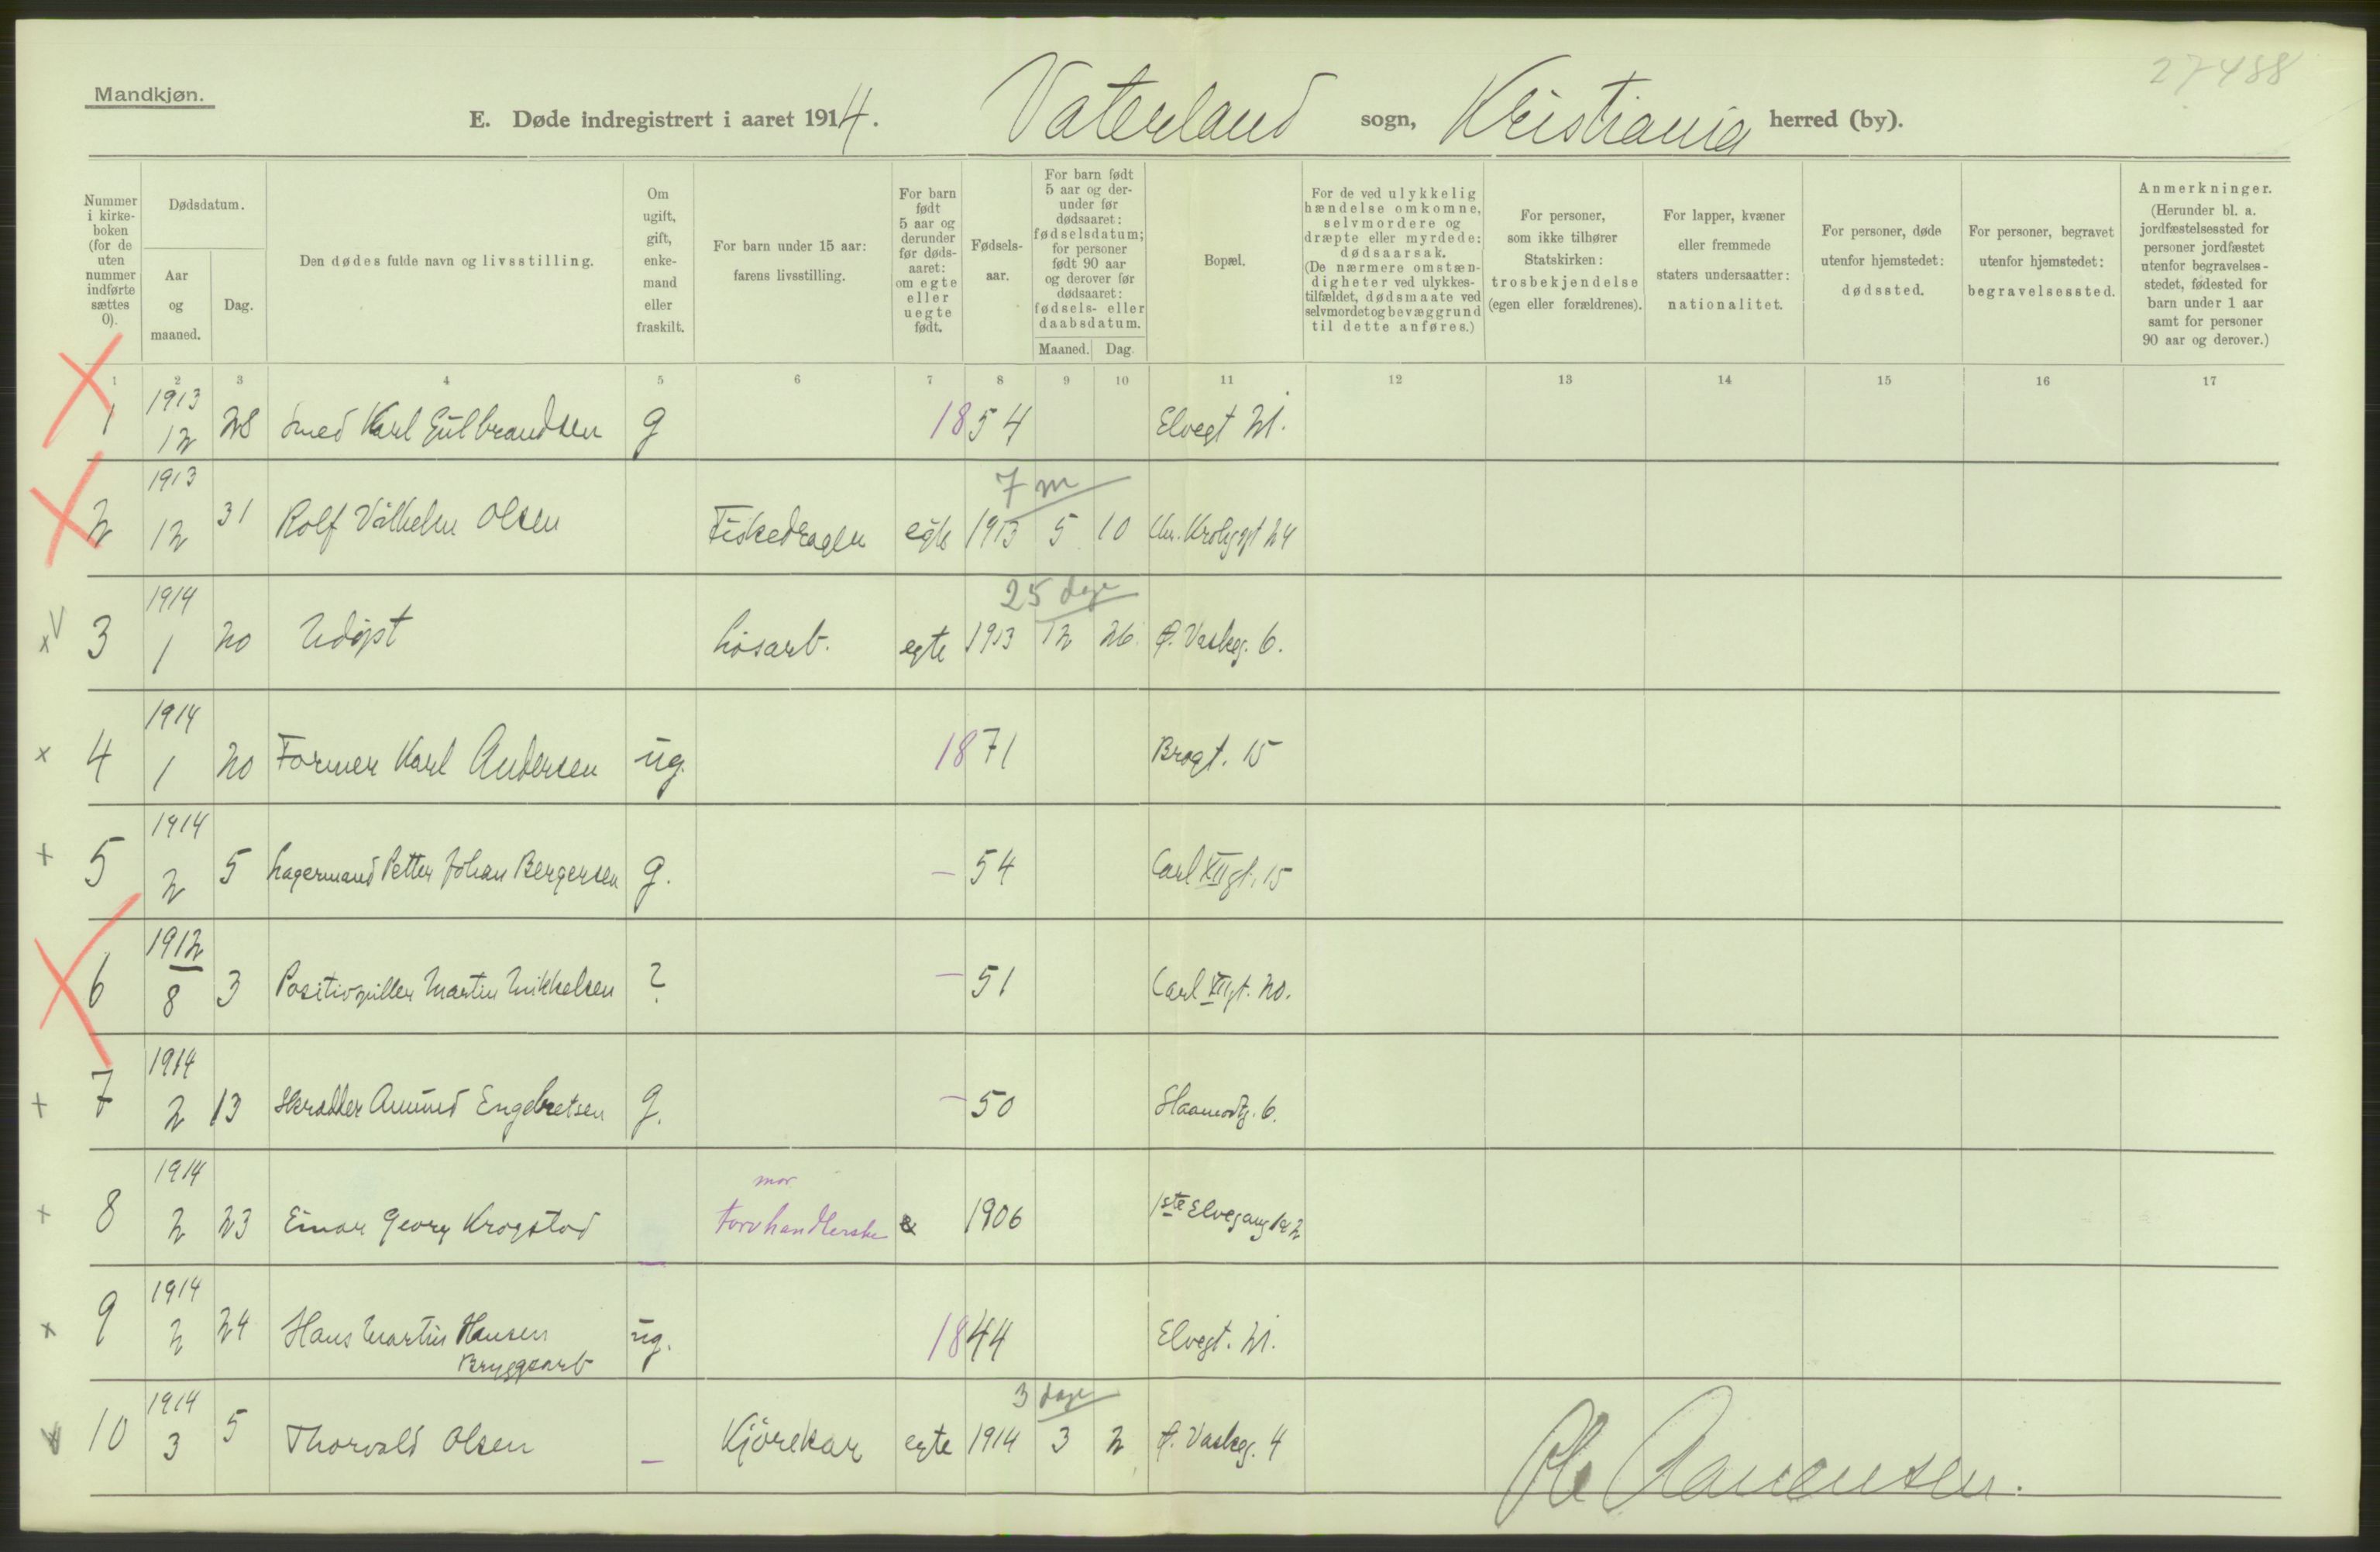 27488
Mandkjøn.
E. Døde indregistrert i aaret 1914. Vaterland sogn, Kristiania herred (by).
Nummer i kirkeboken (for de uten nummer indførte sættes 0).
Dødsdatum.
Aar og maaned.
Dag.
Den dødes fulde navn og livsstilling.
Om ugift, gift, enkemand eller fraskilt.
For barn under 15 aar: farens livsstilling.
For barn født 5 aar og derunder før dødsaaret: om egte eller uegte født.
Fødselsaar.
For barn født 5 aar og derunder før dødsaaret: fødselsdatum; for personer født 90 aar og derover før dødsaaret: fødsels- eller daabsdatum.
Maaned. Dag.
Bopæl.
For de ved ulykkelig hændelse omkomne, selvmordere og dræpte eller myrdede: dødsaarsak. (De nærmere omstændigheter ved ulykkestilfældet, dødsmaate ved selvmordet og bevæggrund til dette anføres.)
For personer, som ikke tilhører Statskirken: trosbekjendelse (egen eller forældrenes).
For lapper, kvæner eller fremmede staters undersaatter: nationalitet.
For personer, døde utenfor hjemstedet: dødssted.
For personer, begravet utenfor hjemstedet: begravelsessted.
Anmerkninger. (Herunder bl. a. jordfæstelsessted for personer jordfæstet utenfor begravelsesstedet, fødested for barn under 1 aar samt for personer 90 aar og derover.)
1 2 3 4 5 6 7 8 9 10 11 12 13 14 15 16 17
1 1913 12 28 Smed Karl Gulbrandsen g 1854 Elvegt 21.
7 m
2 1913 12 31 Rolf Vilhelm Olsen Fiskedrager egte 1913 5 10 Chr. Krohgsgt 24
25 dage
3 1914 1 20 Udøpt Løsarb. egte 1913 12 26 Ø. Vaskeg. 6.
4 1914 1 20 Former Karl Andersen ug. 1871 Brogt. 15
5 1914 2 5 Lagermand Petter Johan Bergersen g. – 54 Carl XII gt. 15
6 1912 8 3 Positivspiller Martin Mikkelsen ? – 51 Carl XII gt. 20.
7 1914 2 13 Skrædder Amund Engebretsen g. – 50 6.
mor
8 1914 2 23 Einar Georg Krogstad torvhandlerske e 1906 1ste Elvegang
9 1914 2 24 Hans Martin Hansen ug. 1844 Elvegt. 21.
Bryggearb
3 dage
10 1914 3 5 Thorvald Olsen – Kjørekar egte 1914 3 2 Ø. Vaskeg. 4